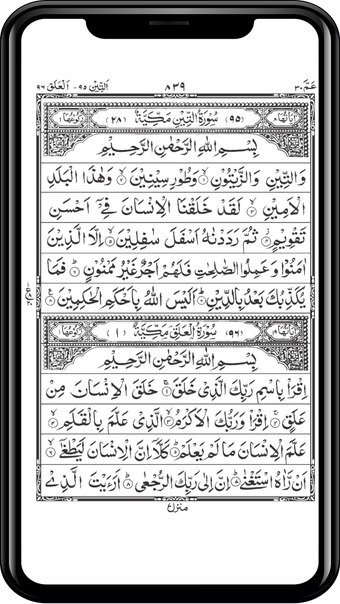 عمّ ٣٠ ٨٣٩ التين ٩٥ - العلق ٩٦
اٰيَاتُهَا ٨ (٩٥) سُوْرَةُ التِّيْنِ مَكِّيَّةٌ (٢٨) رُكُوْعُهَا ١
بِسْمِ اللّٰهِ الرَّحْمٰنِ الرَّحِيْمِ
وَالتِّيْنِ وَالزَّيْتُوْنِ ۙ۱ وَطُوْرِ سِيْنِيْنَ ۙ۲ وَهٰذَا الْبَلَدِ
الْاَمِيْنِ ۙ۳ لَقَدْ خَلَقْنَا الْاِنْسَانَ فِيْٓ اَحْسَنِ
تَقْوِيْمٍ ۫۴ ثُمَّ رَدَدْنٰهُ اَسْفَلَ سٰفِلِيْنَ ۙ۵ اِلَّا الَّذِيْنَ
اٰمَنُوْا وَعَمِلُوا الصّٰلِحٰتِ فَلَهُمْ اَجْرٌ غَيْرُ مَمْنُوْنٍ ۶ فَمَا
يُكَذِّبُكَ بَعْدُ بِالدِّيْنِ ۷ اَلَيْسَ اللّٰهُ بِاَحْكَمِ الْحٰكِمِيْنَ ۸
اٰيَاتُهَا ١٩ (٩٦) سُوْرَةُ الْعَلَقِ مَكِّيَّةٌ (١) رُكُوْعُهَا ١
بِسْمِ اللّٰهِ الرَّحْمٰنِ الرَّحِيْمِ
اِقْرَاْ بِاسْمِ رَبِّكَ الَّذِيْ خَلَقَ ۚ۱ خَلَقَ الْاِنْسَانَ مِنْ
عَلَقٍ ۚ۲ اِقْرَاْ وَرَبُّكَ الْاَكْرَمُ ۙ۳ الَّذِيْ عَلَّمَ بِالْقَلَمِ ۙ۴
عَلَّمَ الْاِنْسَانَ مَا لَمْ يَعْلَمْ ۵ كَلَّآ اِنَّ الْاِنْسَانَ لَيَطْغٰٓى ۙ۶
اَنْ رَّاٰهُ اسْتَغْنٰى ۷ اِنَّ اِلٰى رَبِّكَ الرُّجْعٰى ۸ اَرَءَيْتَ الَّذِيْ